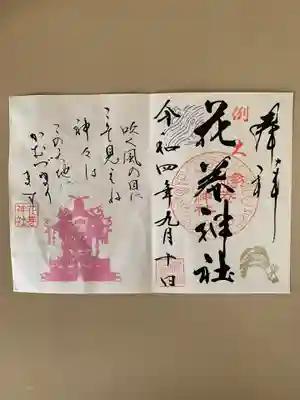 奉拝
例大祭
花巻神社
令和四年九月十日
吹く風の目に
こそ見えね
神々は
この天地に
かむづまり
ます